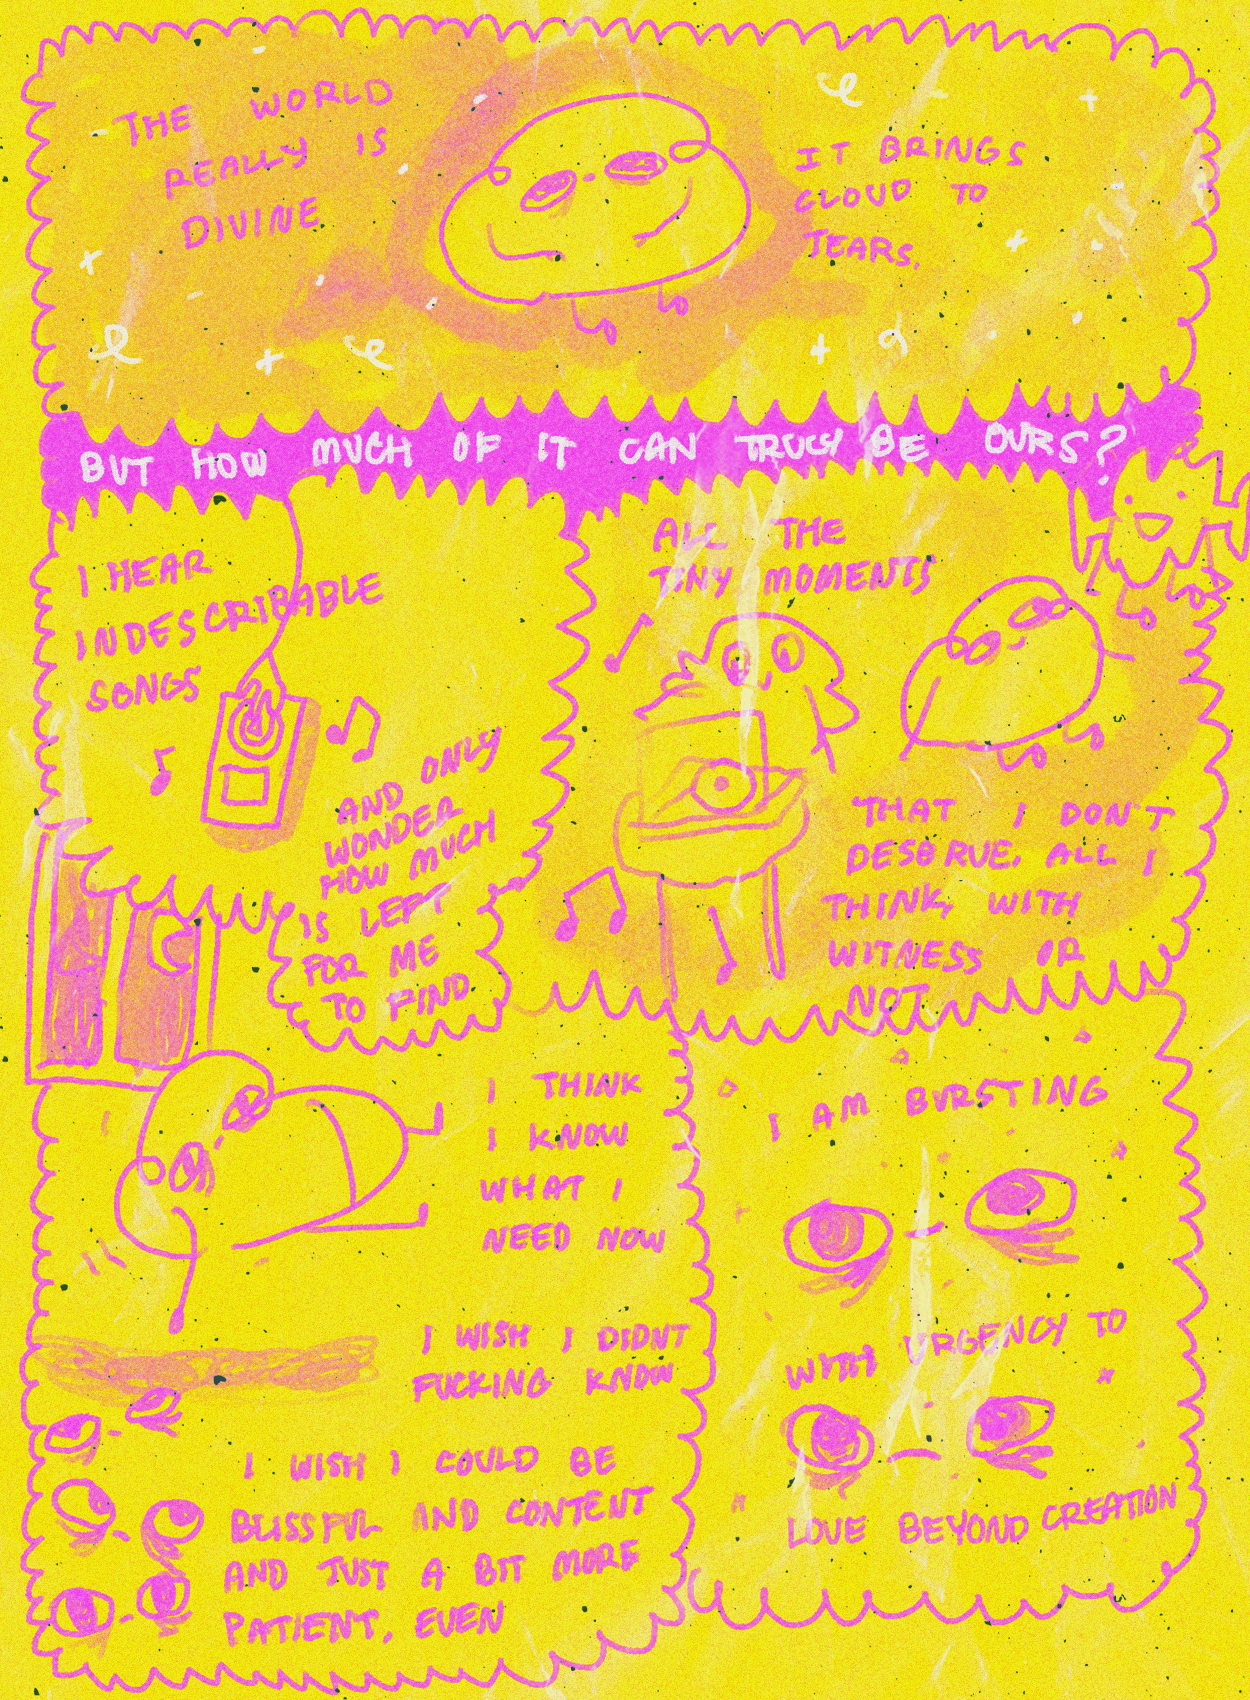 THE WORLD
REALLY IS
DIVINE
IT BRINGS
CLOUD TO
TEARS.
BUT HOW MUCH OF IT CAN TRULY BE OURS?
I HEAR
INDESCRIBABLE
SONGS
AND ONLY
WONDER
HOW MUCH
IS LEFT
FOR ME
TO FIND
ALL THE
TINY MOMENTS
THAT I DON'T
DESERVE, ALL I
THINK, WITH
WITNESS OR
NOT
I THINK
I KNOW
WHAT I
NEED NOW
I WISH I DIDNT
FUCKING KNOW
I WISH I COULD BE
BLISSFUL AND CONTENT
AND JUST A BIT MORE
PATIENT, EVEN
I AM BURSTING
WITH URGENCY TO
LOVE BEYOND CREATION